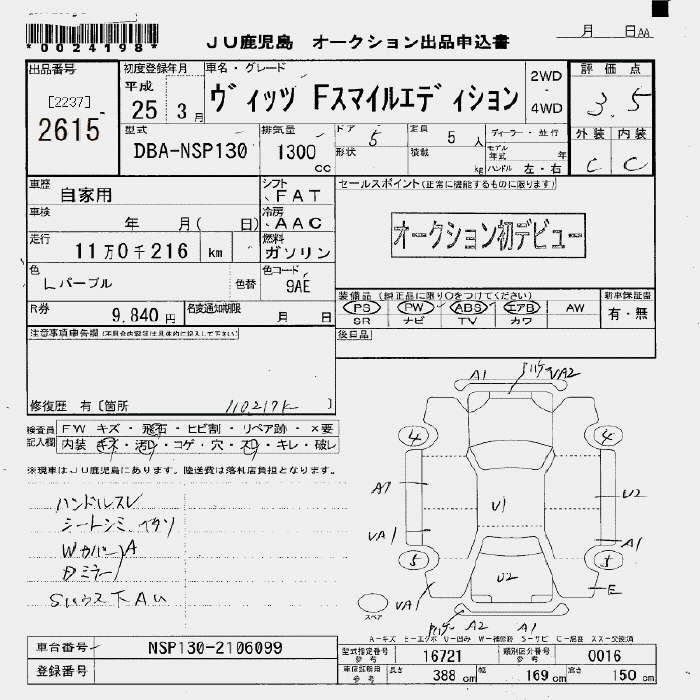 *0024198*
JU鹿児島 オークション出品申込書
月 日AA
出品番号 初度登録年月 車名・グレード 2WD・4WD 評価点
[2237] 平成 25 3月 ヴィッツ Fスマイルエディション 3.5
2615
型式 排気量 ドア 5 定員 5人 ディーラー・並行 外装 内装
DBA-NSP130 1300cc 形状 積載 kg モデル年式 年 ハンドル 左・右 C C
車歴 自家用 シフト FAT セールスポイント(正常に機能するものに限ります)
車検 年 月( 日) 冷房 AAC
オークション初デビュー
走行 11万0千216 km 燃料 ガソリン
色 Lパープル 色替 色コード 9AE
装備品(純正品に限り○をつけてください) 新車保証書
PS PW ABS エアB AW 有・無
SR ナビ TV カワ
R券 9,840円 名変通知期限 月 日
後日品
注意事項申告欄(不具合内容等は具体的に記入して下さい)
修復歴 有〔箇所 110,217K 〕
検査員記入欄 FW キズ・飛石・ヒビ割・リペア跡・×要
内装・キズ・汚レ・コゲ・穴・スレ・キレ・破レ
※現車はJU鹿児島にあります。陸送費は落札店負担となります。
A1 VA2
4 4
A1 U1 U2
VA1 A1
5 5
U2
VA1 E
A2 A1
スペア
ハンドルスレ
WカバーA
Dミラー
A-キズ E-エクボ U-凹み W-補修跡 S-サビ C-腐食 XX-交換済
車台番号 NSP130-2106099
型式指定番号 参考 16721 類別区分番号 参考 0016
登録番号
参考 長さ 388cm 幅 169cm 高さ 150cm